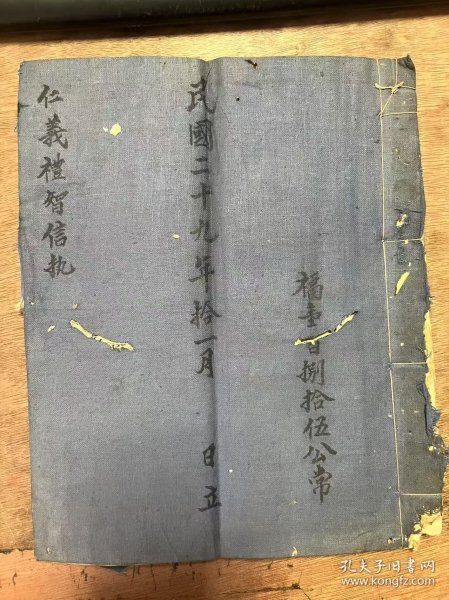 福壹百捌拾伍公常
民國二十九年拾一月 日立
仁義禮智信执
孔夫子旧书网
www.kongfz.com